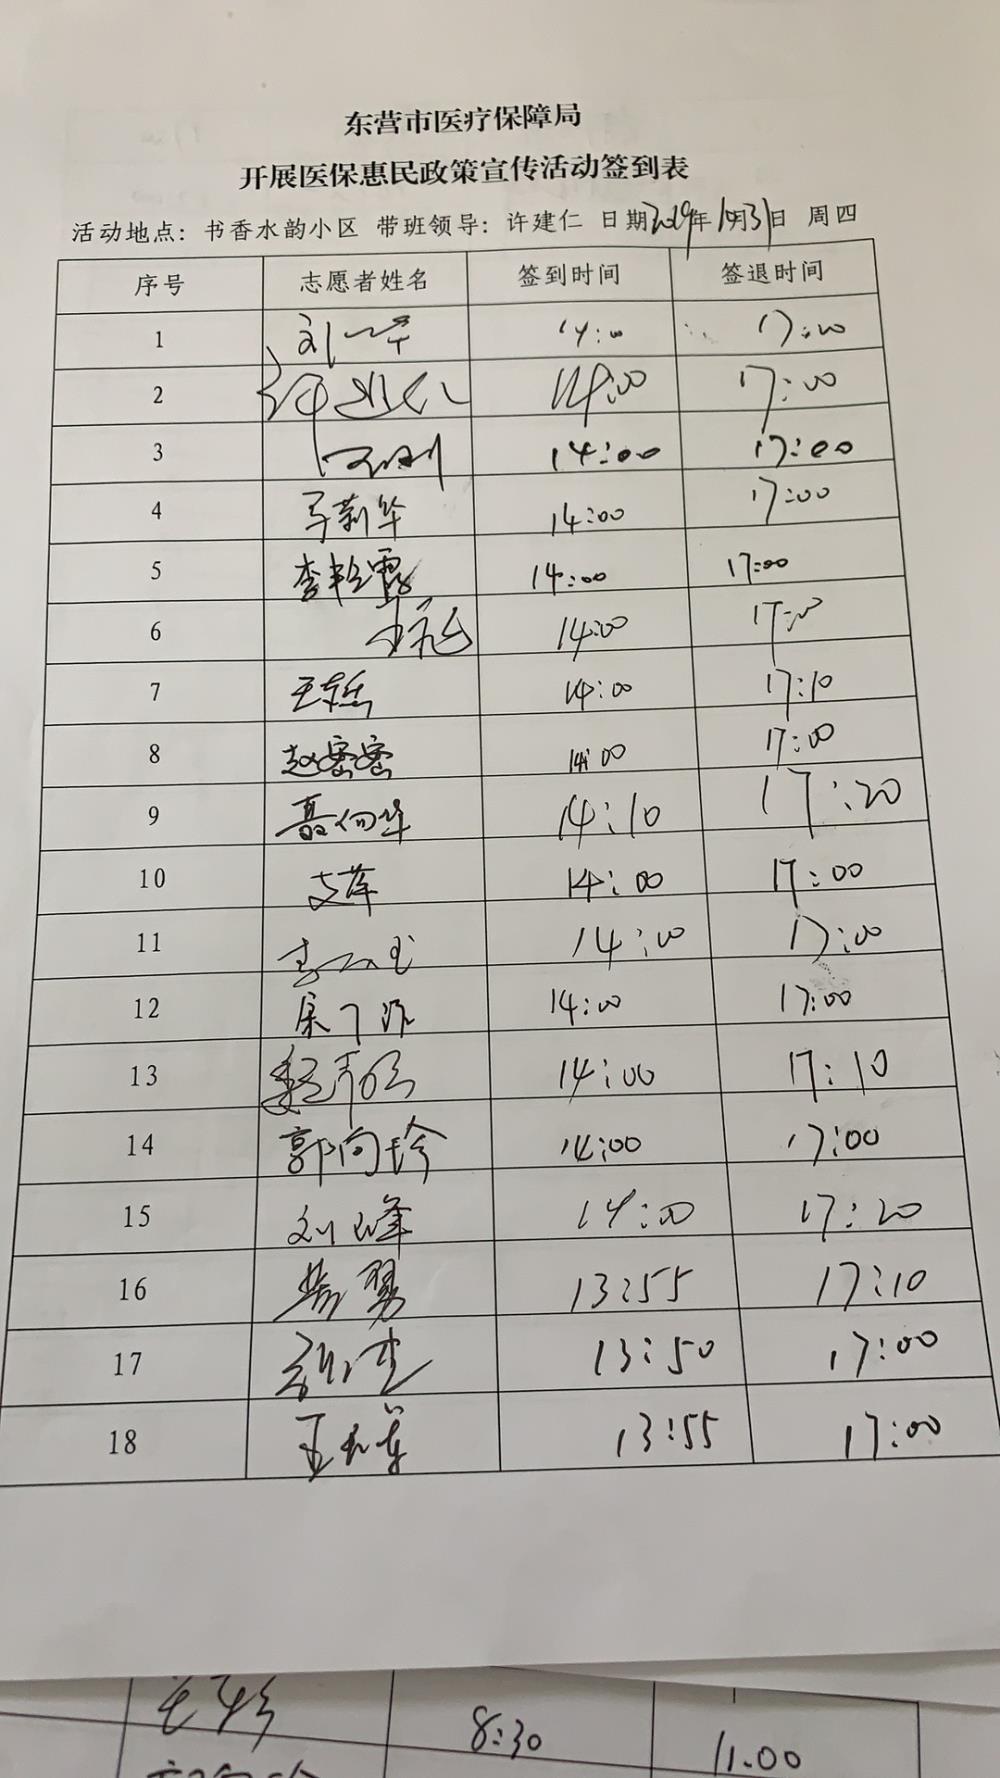 东营市医疗保障局
开展医保惠民政策宣传活动签到表
活动地点：书香水韵小区 带班领导：许建仁 日期2019年10月31日 周四
序号 志愿者姓名 签到时间 签退时间
1 14:00 17:20
2 14:00 17:00
3 14:00 17:00
4 马莉华 14:00 17:00
5 李艳霞 14:00 17:00
6 14:00 17:00
7 14:00 17:10
8 赵密密 14:00 17:00
9 聂向华 14:10 17:20
10 支萍 14:00 17:00
11 14:00 17:00
12 14:00 17:00
13 14:00 17:10
14 郭向珍 14:00 17:00
15 刘峰 14:00 17:20
16 13:55 17:10
17 13:50 17:00
18 13:55 17:00
8:30 11.00